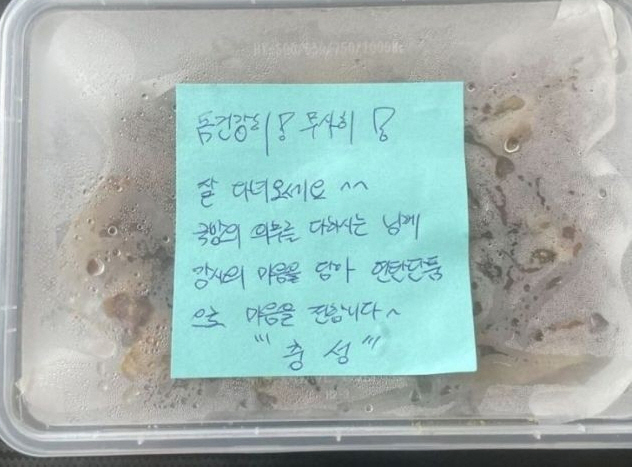 HR-500/650/750/1000Hc
몸건강히! 무사히!
잘 다녀오세요 ^^
국방의 의무를 다하시는 님께
감사의 마음을 담아 연탄단품
으로 마음을 전합니다~
"' 충 성 "'